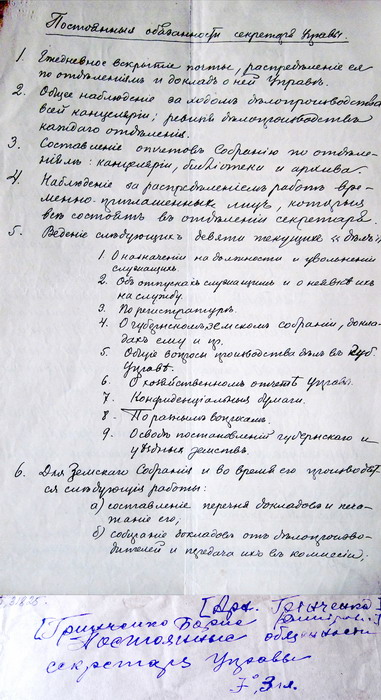 Постоянныя обязанности секретаря Управы.
1. Ежедневное вскрытие почты, распредѣленіе ея
по отдѣленіямъ и докладъ о ней Управѣ.
2. Общее наблюденіе за ходомъ дѣлопроизводства
всей канцеляріи; ревизія дѣлопроизводствъ
каждаго отдѣленія.
3. Составленіе отчетовъ Собранію по отдѣле-
ніямъ: канцеляріи, библіотеки и архива.
4. Наблюденіе за распредѣленіемъ работъ вре-
менно-приглашенныхъ лицъ, которыя
всѣ состоятъ въ отдѣленіи секретаря.
5. Веденіе слѣдующихъ девяти текущихъ "дѣлъ":
1. О назначеніи на должности и увольненіи
служащихъ.
2. Объ отпускахъ служащимъ и о неявкѣ ихъ
на службу.
3. По регистратурѣ.
4. О губернскомъ земскомъ собраніи, докла-
дахъ ему и пр.
5. Общіе вопросы производства дѣлъ въ Губ.
Управѣ.
6. О хозяйственномъ отчетѣ Управы.
7. Конфиденціальныя бумаги.
8. По разнымъ вопросамъ.
9. О сводѣ постановленій губернскаго и
уѣздныхъ земствъ.
6. Для Земскаго Собранія и во время его производят-
ся слѣдующія работы:
а) составленіе перечня докладовъ и печа-
таніе его;
б) собираніе докладовъ отъ дѣлопроизво-
дителей и передача ихъ въ комиссіи;
[Арх. Грінченко]
[Гринченко Борис Дмитрович]
Постоянные обязанности
секретаря Управы
3 л.